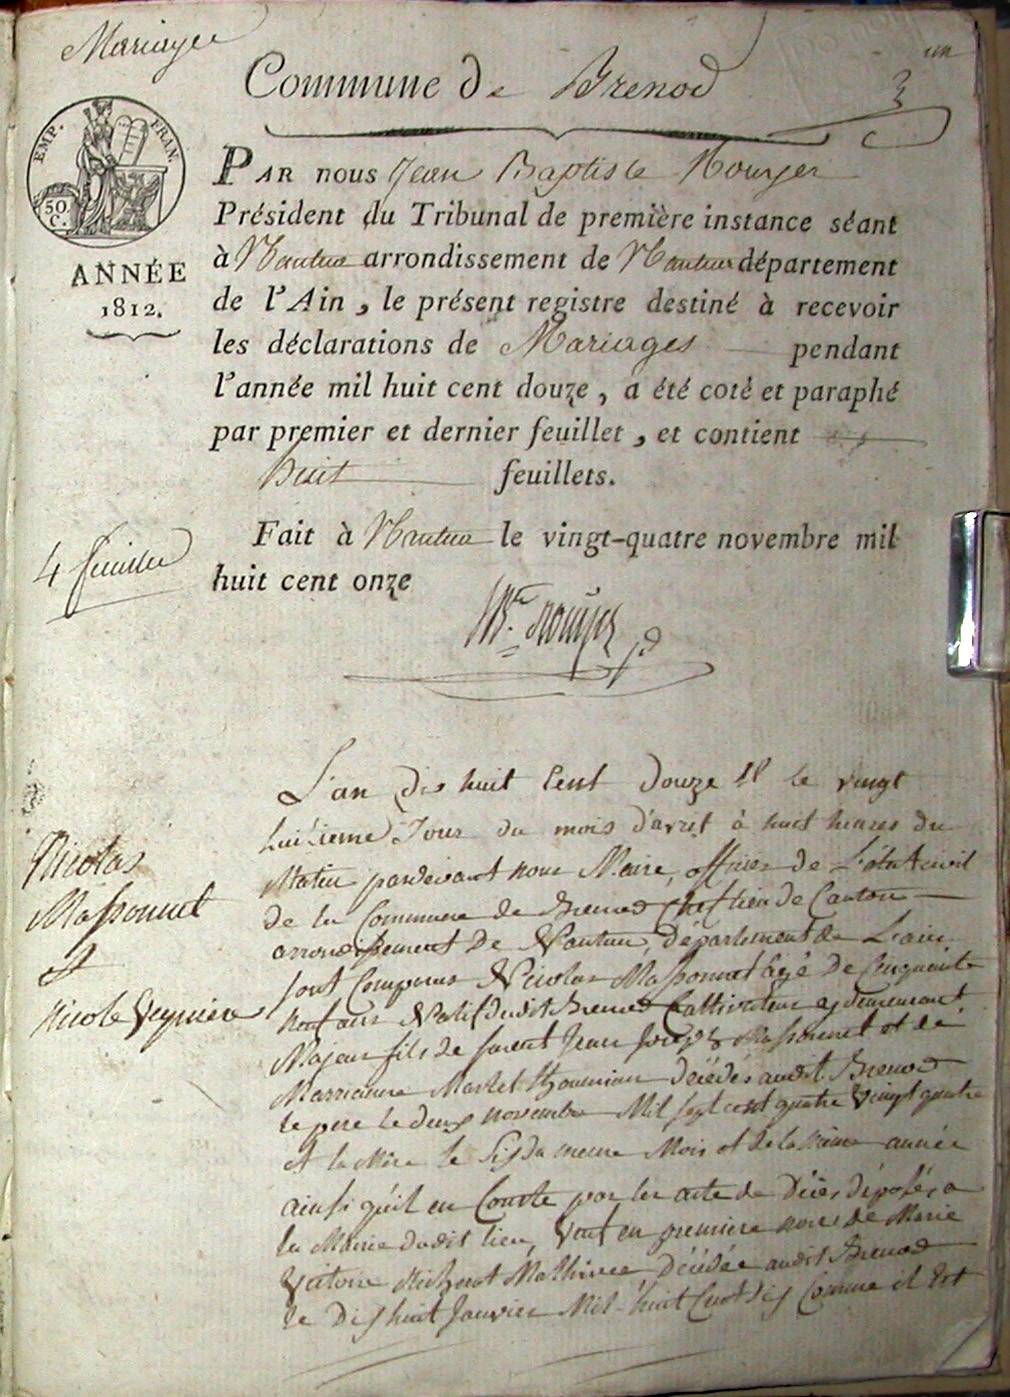 Mariages
un
Commune de Brenod
EMP. FRAN.
50 C.
ANNÉE
1812.
PAR nous Jean Baptiste Rouyer
Président du Tribunal de première instance séant
à Nantua arrondissement de Nantua département
de l'Ain, le présent registre destiné à recevoir
les déclarations de Mariages pendant
l'année mil huit cent douze, a été coté et paraphé
par premier et dernier feuillet, et contient
huit feuillets.
Fait à Nantua le vingt-quatre novembre mil
huit cent onze
4 feuilles
L'an dix huit Cent douze & le vingt
huitieme Jour du mois d'avril à huit heures du
Matin pardevant nous Maire, officier de L'état Civil
de la Commune de Brenod Chef lieu de Canton
arrondissement de Nantua, Département de L'ain
sont Comparus Nicolas Massonnet agé de Cinquante
neuf ans Natif dudit Brenod Cultivateur y demeurant
Majeur fils de Jean Massonnet et de
Marianne décédés audit Brenod
le pere le deux novembre Mil sept cent quatre vingt quatre
et la Mere le Six du meme Mois et de la meme année
ainsi qu'il en Conste par les acte de Décès déposés a
la Mairie dudit lieu, Veuf en premiere noces de Marie
Victoire Décédée audit Brenod
le Dix huit Janvier Mil huit Cent dix Comme il Est
Nicolas
Massonnet
et
Nicole